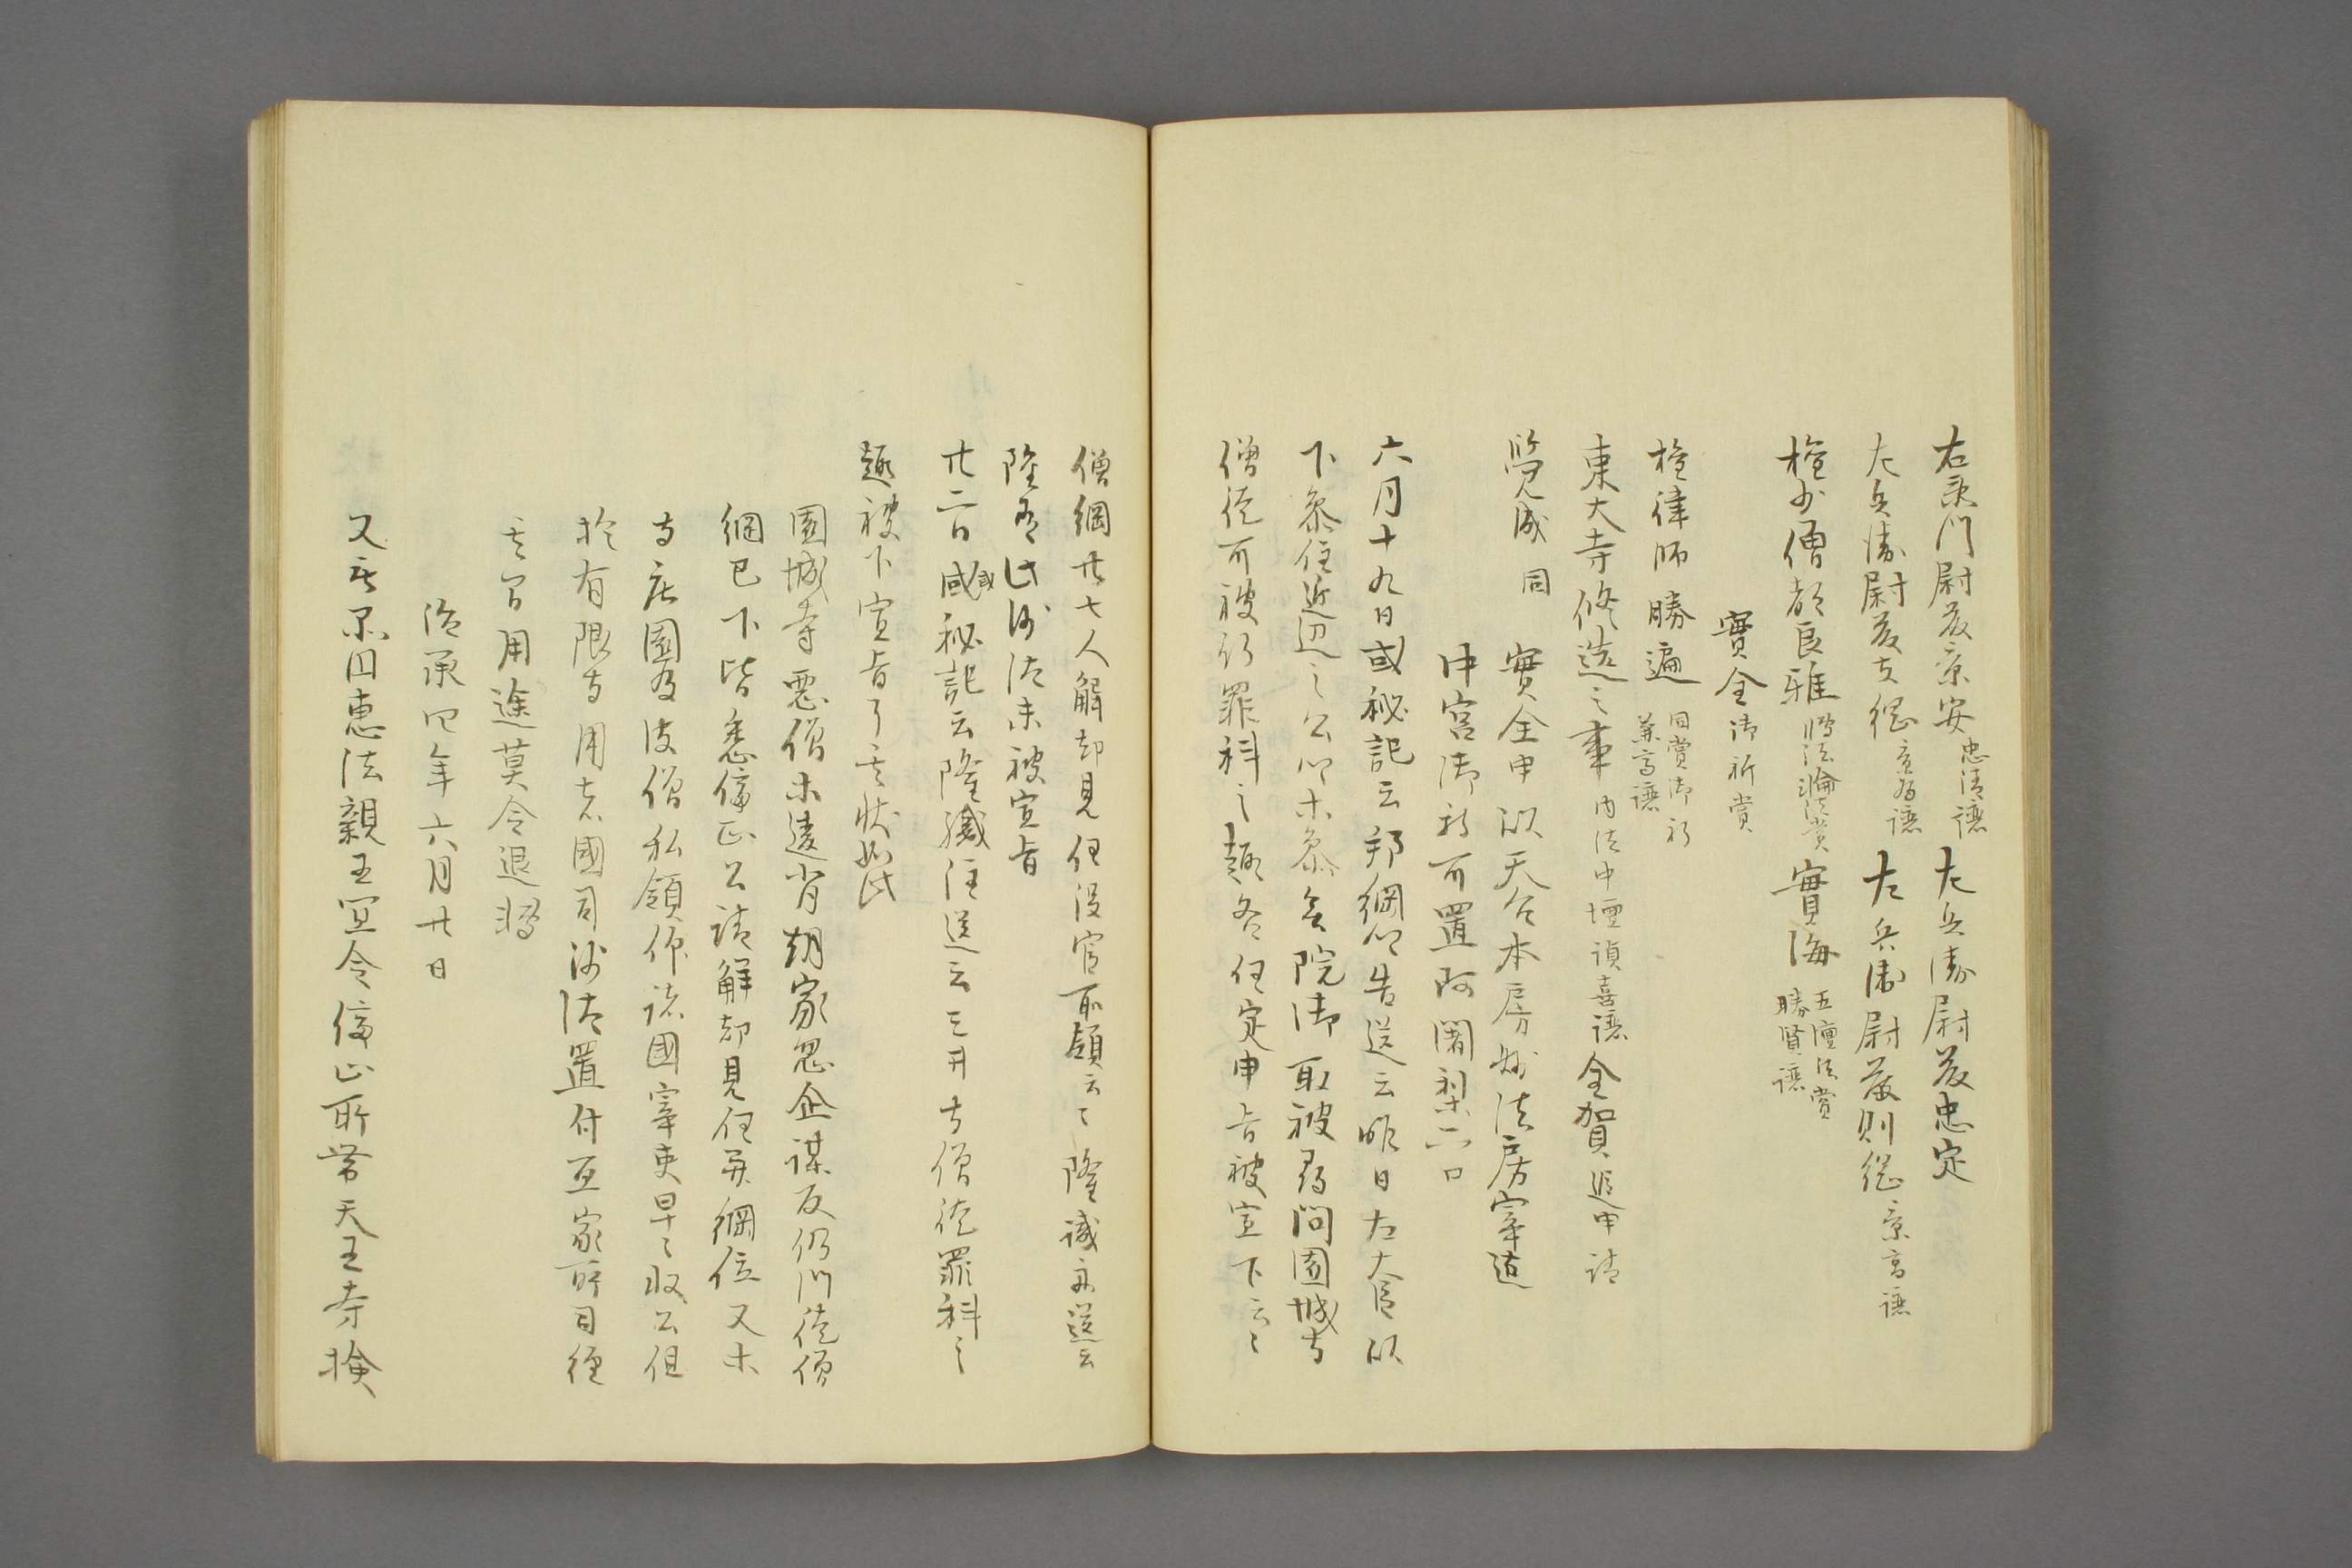 右衛門尉藤景安忠清譲 左兵衛尉藤忠定
左兵衛尉藤友綱景為譲 左兵衛尉藤則綱景高譲
権少僧都良雅轉法輪法賞 實海五壇法賞勝賢譲
實全御祈賞
権律師勝遍同賞御祈兼高譲
東大寺修造之事内法中壇禎喜譲 全賀追申請
覺成同 實全申以天台本房法房宰造
中宮御祈可置阿闍梨六口
六月十九日或秘記云邦綱卿告送云昨日左大臣以
下参住近辺之公卿等参會院御 取被尋問園城寺
僧徒可被行罪科之趣各任定申旨被宣下云々
僧綱廿七人解却見任没官所領云々隆誠示送云
隆有此沙汰未被宣旨
廿二日或秘記云隆職注送云三井寺僧徒罪科之
趣被下宣旨了其状如此
園城寺悪僧等違背朝家忽企謀反仍門徒僧
綱已下皆悉停止公請解却見任并綱位又末
寺庄園及彼僧私領仰諸國宰吏早々收公但
於有限寺用者國司沙汰置付互家所司任
其官用途莫令退轉
治承四年六月廿日
又無品円惠法親王宜令停止所帯天王寺検